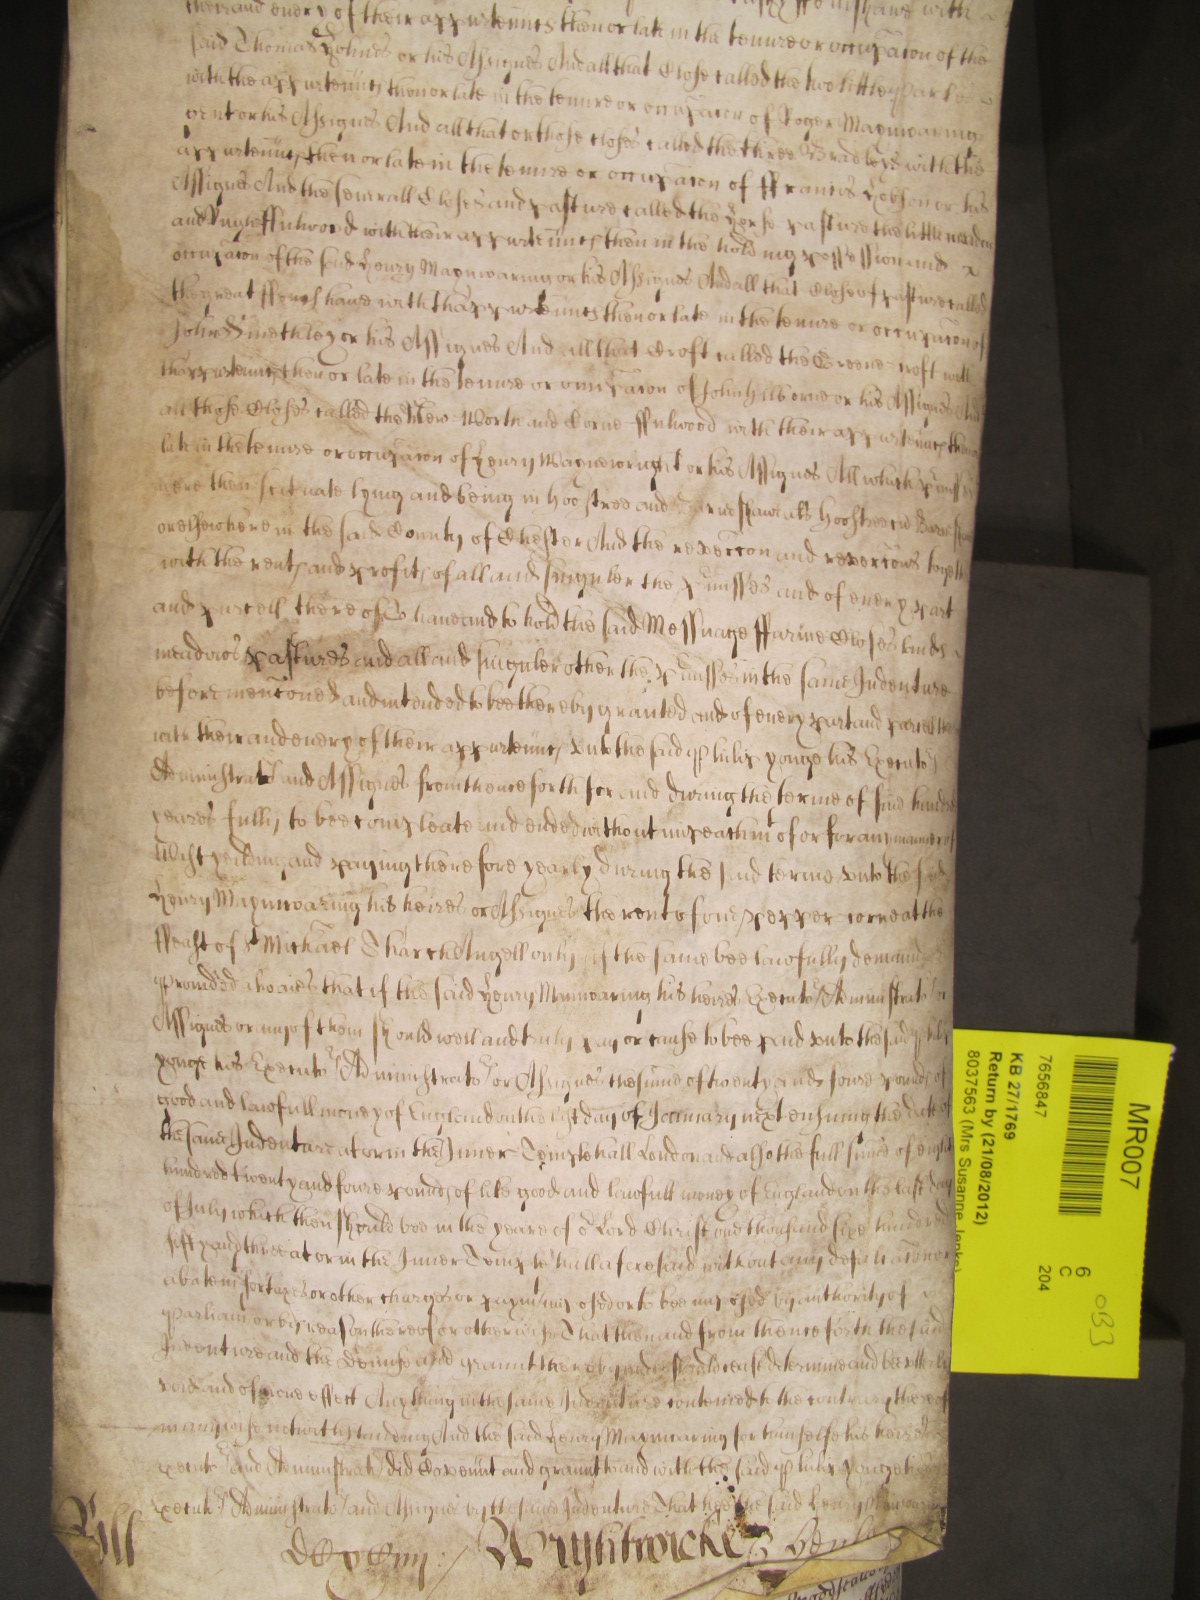 their and every of their appurtennces then or late in the tenure or occupacon of the
said Thomas Holmes or his Assignes And all that Close called the two little
with the appurtennces then or late in the tenure or occupacon of Roger Maynwaringe
gent or his Assignes And all that or those closes called the three Bradleys with the
appurtennces then or late in the tenure or occupacon of ffrancis Hobson or his
Assignes And the severall Closes and pasture called the Horse pasture the little meadow
and ffulwood with their appurtennces then in the holding possession and
occupacon of the said Henry Maynwaring or his Assignes And all that Close of pasture called
the great with thappurtennces then or late in the tenure or occupacon of
John Smethley or his Assignes And all that Croft called the Greene croft with
thappurtennces then or late in the tenure or occupacon of John or his Assignes And
all those Closes called the New Worth and Corne ffulwood with their appurtennces then
late in the tenure or occupacon of Henry or his Assignes All which pmisses
were then scituate lying and being in and als
or elsewhere in the said County of Chester And the revercon and revercons together
with the rents and profits of all and singuler the pmisses and of every part
and parcell thereof To have and to hold the said Messuage ffarme Closes lands
meadows pastures and all and singuler other the pmisses in the same Indenture
before menconed and intended to bee thereby graunted and of every part and parcell
with their and every of their appurtennces unto the said Philip yonge his Executors
Administrators and Assignes from thenceforth for and during the terme of five hundred
yeares fully to bee compleate and ended without impeachmt of or for any manner of
Wast yeilding and paying therefore yearly during the said terme unto the said
Henry Maynwaring his heires or Assignes the rent of one pepper corne at the
ffeast of St Michael Tharchangell only if the same bee lawfully demanded
Provided alwaies that if the said Henry Maynwaring his heires Executors Administrators or
Assignes or any of them should well and truly pay or cause to bee paid unto the said Philip
yonge his Executors Administrators or Assignes the summe of twenty and foure pounds of
good and lawfull money of England on the last day of January next ensuing the date of
the same Indenture at or in the Inner Temple hall London and also the full summe of eight
hundred twenty and foure pounds of like good and lawfull money of England on the last day
of July which then should bee in the yeare of or Lord Christ one thousand six hundred
fifty and three at or in the Inner Temple hall aforesaid without any defalcacon or
abatemt for taxes or other charges or paymts imposed or to bee imposed by authority of
Parliamt or by reason thereof or otherwise That then and from thenceforth the said
Indenture and the demise and graunt thereby made should cease determine and bee utterly
void and of none effect Any thing in the same Indenture conteined to the contrary thereof
in any wise notwithstanding And the said Henry Maynwaring for himselfe his heires
Executors and Administrators did Covennt and graunt to and with the said Philip yonge his
Executors Administrators and Assignes by the same Indenture That hee the said Henry Maynwaring
Bill
Wrightwicke
MR007
7656847
KB 27/1769
Return by (21/08/2012)
8037563 (Mrs Susanne Jenks)
6
C
204
OB3